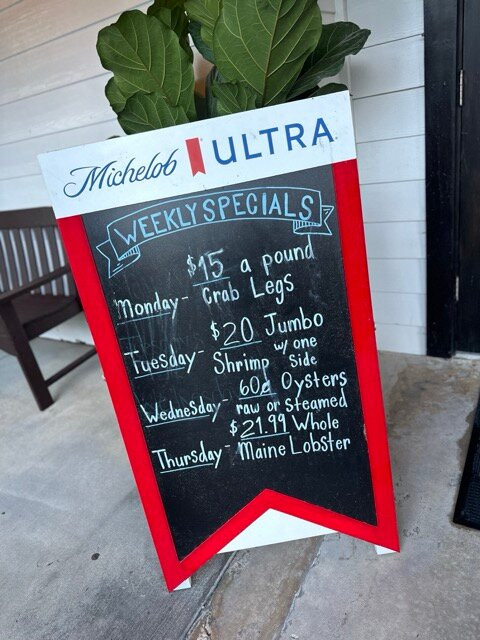 Michelob ULTRA
WEEKLY SPECIALS
$15 a pound
Monday - Crab Legs
$20 Jumbo
Tuesday - Shrimp w/ one side
60¢ Oysters
Wednesday - raw or steamed
$21.99 Whole
Thursday - Maine Lobster